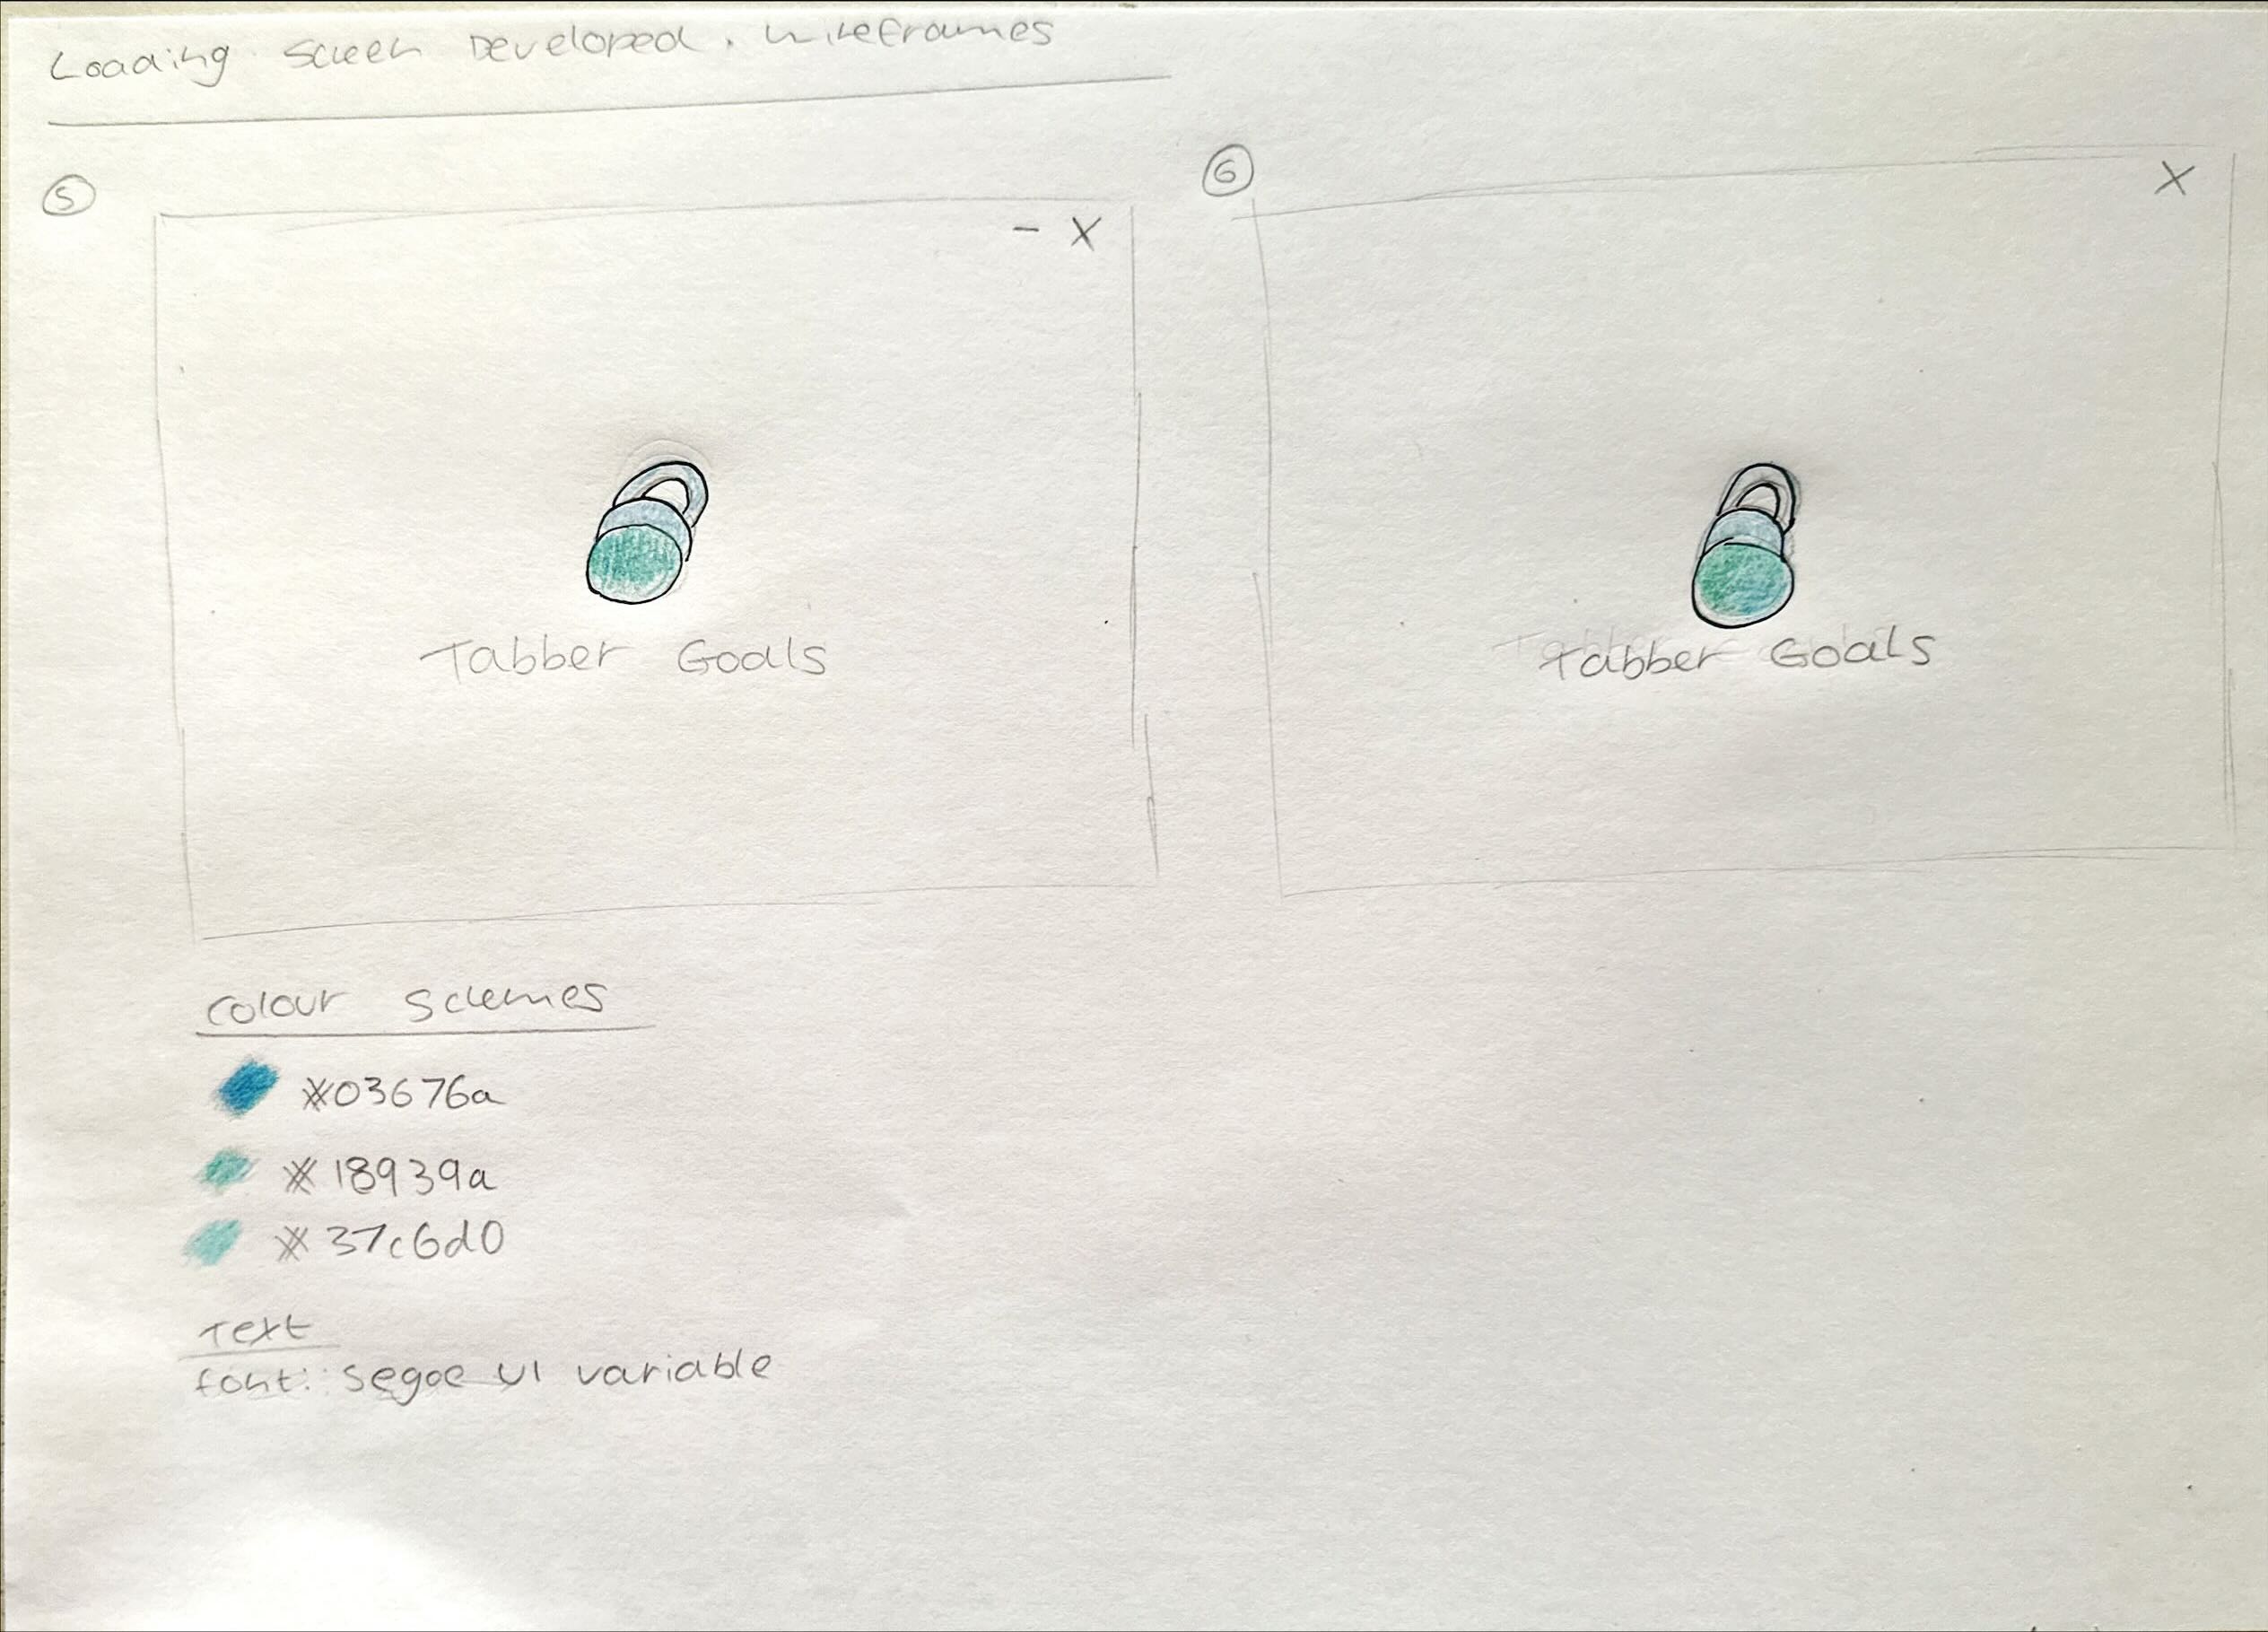 Loading Screen Developed. Wireframes
5
6
- X
X
Tabber Goals
Tabber Goals
Colour Schemes
#03676a
#18939a
#37c6d0
Text
font: Segoe UI variable